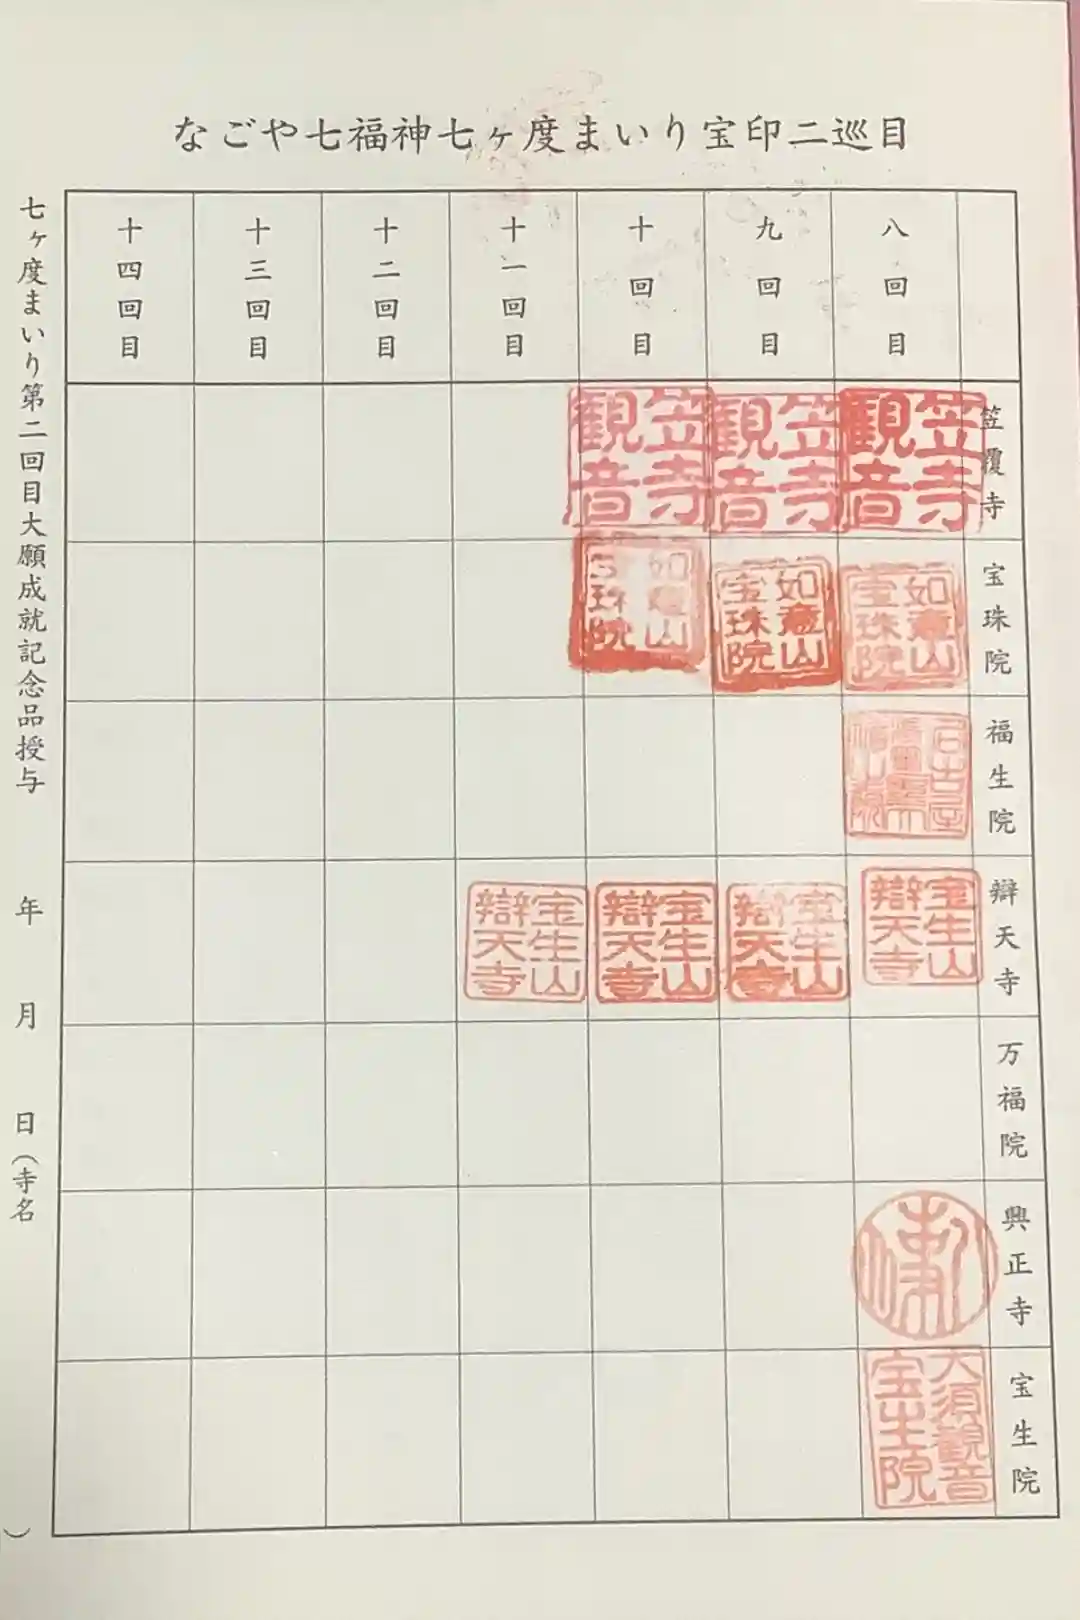 なごや七福神七ヶ度まいり宝印二巡目
八回目
九回目
十回目
十一回目
十二回目
十三回目
十四回目
笠覆寺
笠寺観音
笠寺観音
笠寺観音
宝珠院
如意山宝珠院
如意山宝珠院
如意山宝珠院
福生院
辯天寺
宝生山辯天寺
宝生山辯天寺
宝生山辯天寺
宝生山辯天寺
万福院
興正寺
宝生院
大須観音宝生院
七ヶ度まいり第二回目大願成就記念品授与 年 月 日(寺名 )